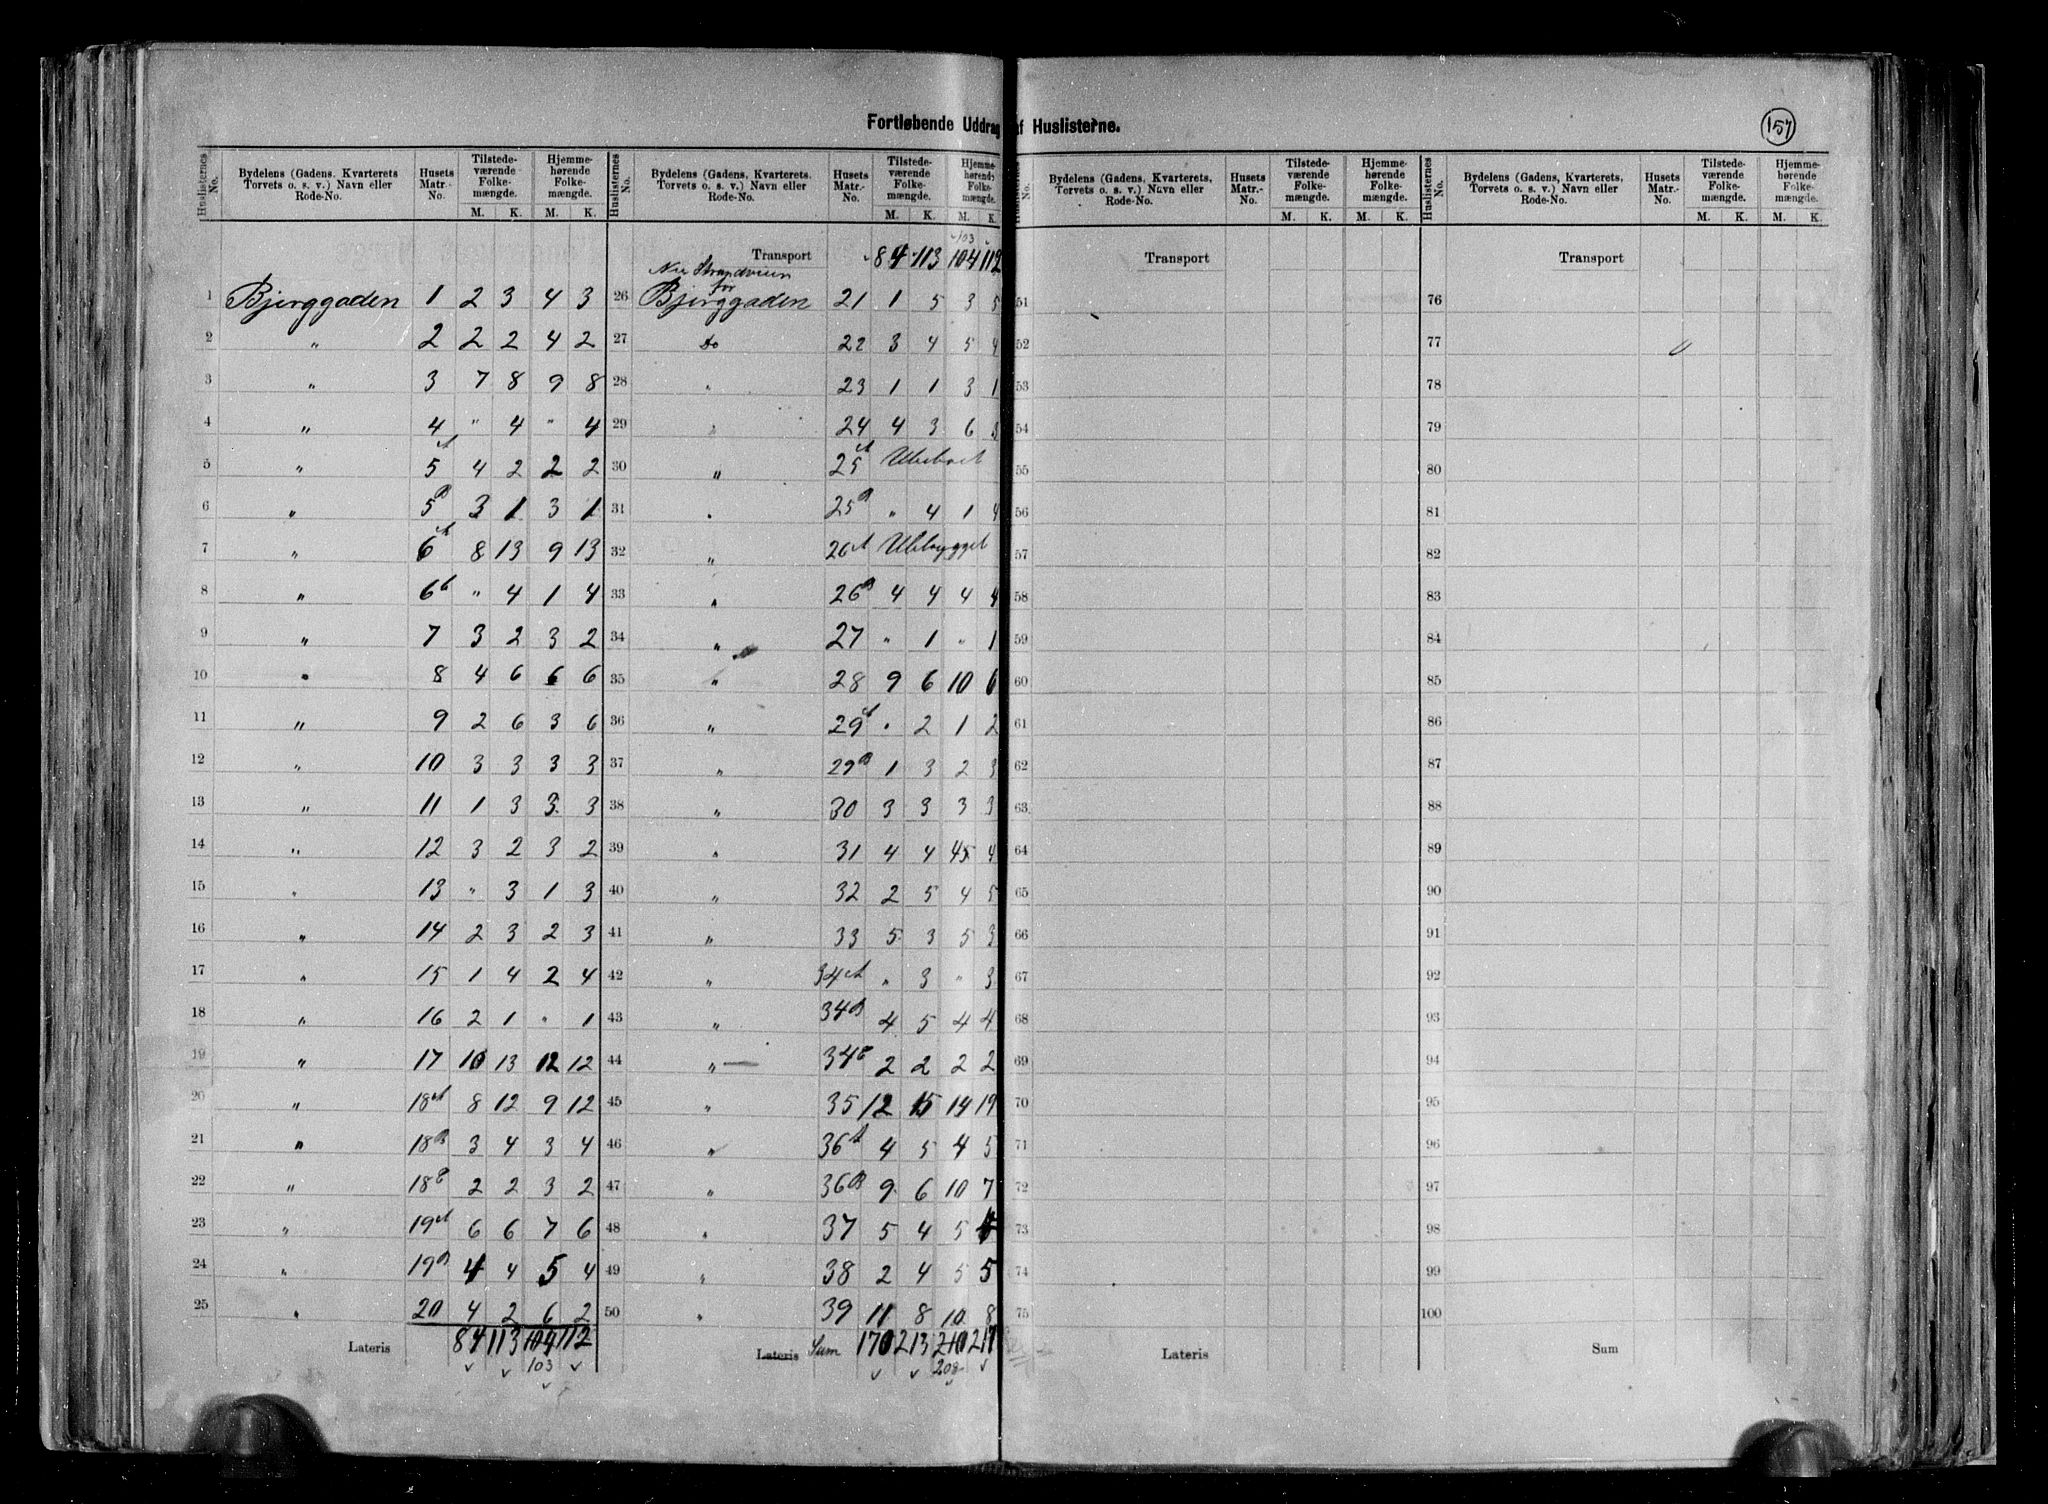 Fortløbende Uddrag af Huslisterne.
157
Huslisternes No. | Bydelens (Gadens, Kvarterets, Torvets o. s. v.) Navn eller Rode-No. | Husets Matr.-No. | Tilstedeværende Folkemængde. M. K. | Hjemmehørende Folkemængde. M. K.
1 Bjerggaden 1 2 3 4 3
2 " 2 2 2 4 2
3 " 3 7 8 9 8
4 " 4 " 4 " 4
5 " 5A 4 2 2 2
6 " 5B 3 1 3 1
7 " 6A 8 13 9 13
8 " 6b " 4 1 4
9 " 7 3 2 3 2
10 " 8 4 6 6 6
11 " 9 2 6 3 6
12 " 10 3 3 3 3
13 " 11 1 3 3 3
14 " 12 3 2 3 2
15 " 13 " 3 1 3
16 " 14 2 3 2 3
17 " 15 1 4 2 4
18 " 16 2 1 " 1
19 " 17 10 13 12 12
20 " 18A 8 12 9 12
21 " 18B 3 4 3 4
22 " 18C 2 2 3 2
23 " 19A 6 6 7 6
24 " 19B 4 4 5 4
25 " 20 4 2 6 2
Lateris 84 113 104 112
103
Huslisternes No. | Bydelens (Gadens, Kvarterets, Torvets o. s. v.) Navn eller Rode-No. | Husets Matr.-No. | Tilstedeværende Folkemængde. M. K. | Hjemmehørende Folkemængde. M. K.
103
Transport 84 113 104 112
Nu Strandveien
før
26 Bjerggaden 21 1 5 3 5
27 Do 22 3 4 5 4
28 " 23 1 1 3 1
29 " 24 4 3 6 3
30 " 25A Ubeboet
31 " 25B " 4 1 4
32 " 26A Ubebygget
33 " 26B 4 4 4 4
34 " 27 " 1 " 1
35 " 28 9 6 10 6
36 " 29A " 2 1 2
37 " 29B 1 3 2 3
38 " 30 3 3 3 3
39 " 31 4 4 45 4
40 " 32 2 5 4 5
41 " 33 5 3 5 3
42 " 34A " 3 " 3
43 " 34B 4 5 4 4
44 " 34C 2 2 2 2
45 " 35 12 15 14 19
46 " 36A 4 5 4 5
47 " 36B 9 6 10 7
48 " 37 5 4 5
49 " 38 2 4 5 5
50 " 39 11 8 10 8
Lateris Sum 170 213 210 217
208
Huslisternes No. | Bydelens (Gadens, Kvarterets, Torvets o. s. v.) Navn eller Rode-No. | Husets Matr.-No. | Tilstedeværende Folkemængde. M. K. | Hjemmehørende Folkemængde. M. K.
Transport
51
52
53
54
55
56
57
58
59
60
61
62
63
64
65
66
67
68
69
70
71
72
73
74
75
Lateris
Huslisternes No. | Bydelens (Gadens, Kvarterets, Torvets o. s. v.) Navn eller Rode-No. | Husets Matr.-No. | Tilstedeværende Folkemængde. M. K. | Hjemmehørende Folkemængde. M. K.
Transport
76
77
78
79
80
81
82
83
84
85
86
87
88
89
90
91
92
93
94
95
96
97
98
99
100
Sum